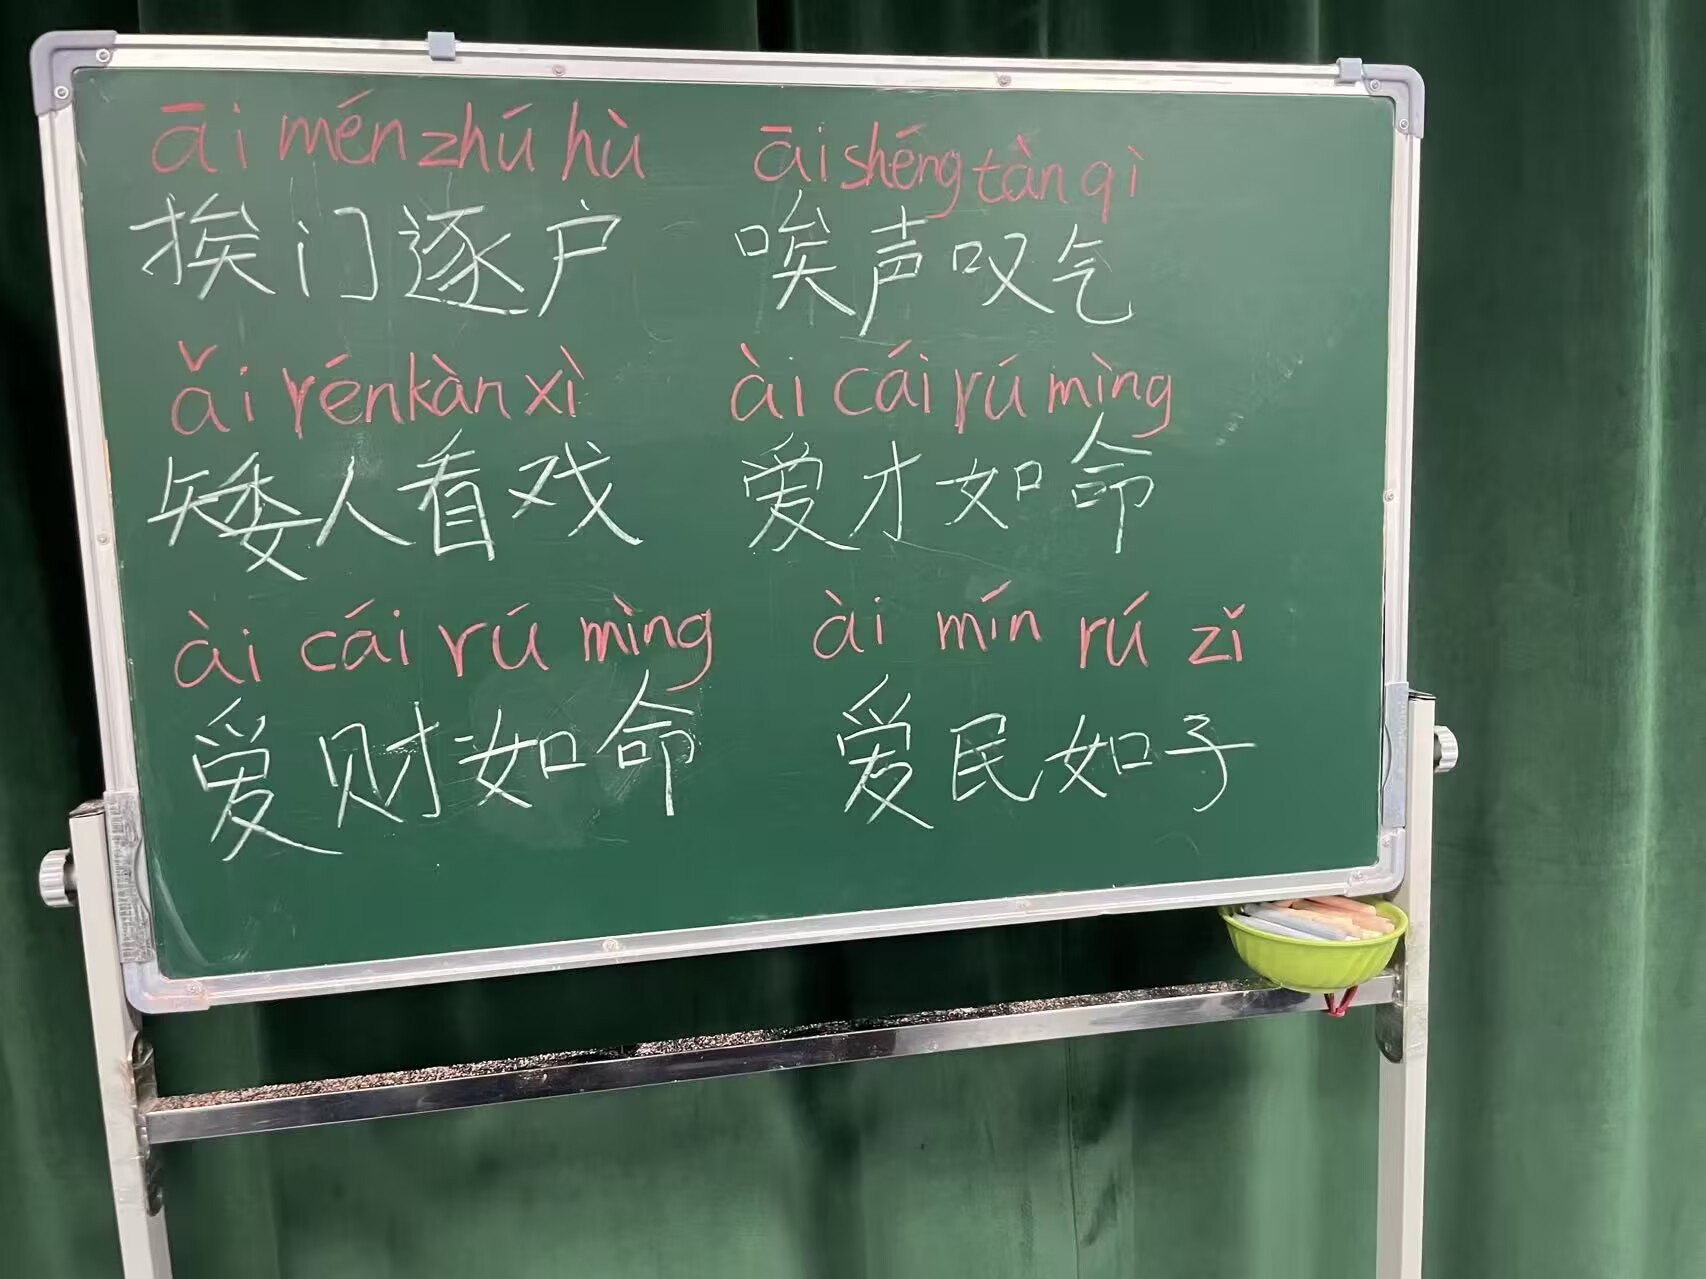 āi mén zhú hù āi shéng tàn qì
挨门逐户 唉声叹气
ǎi rén kàn xì ài cái rú mìng
矮人看戏 爱才如命
ài cái rú mìng ài mín rú zǐ
爱财如命 爱民如子